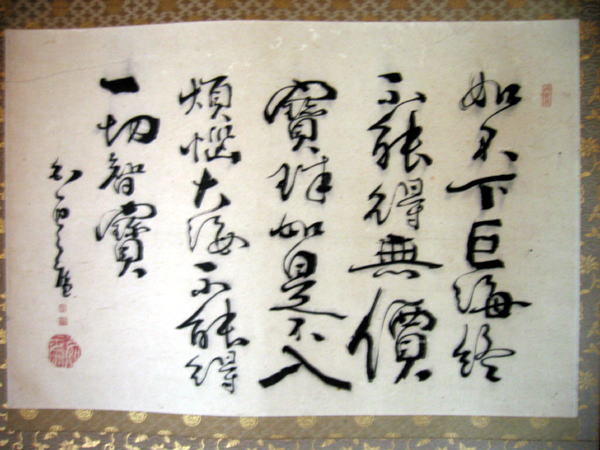 如不下巨海終
不能得無價
寶珠如是不入
煩惱大海不能得
一切智寶